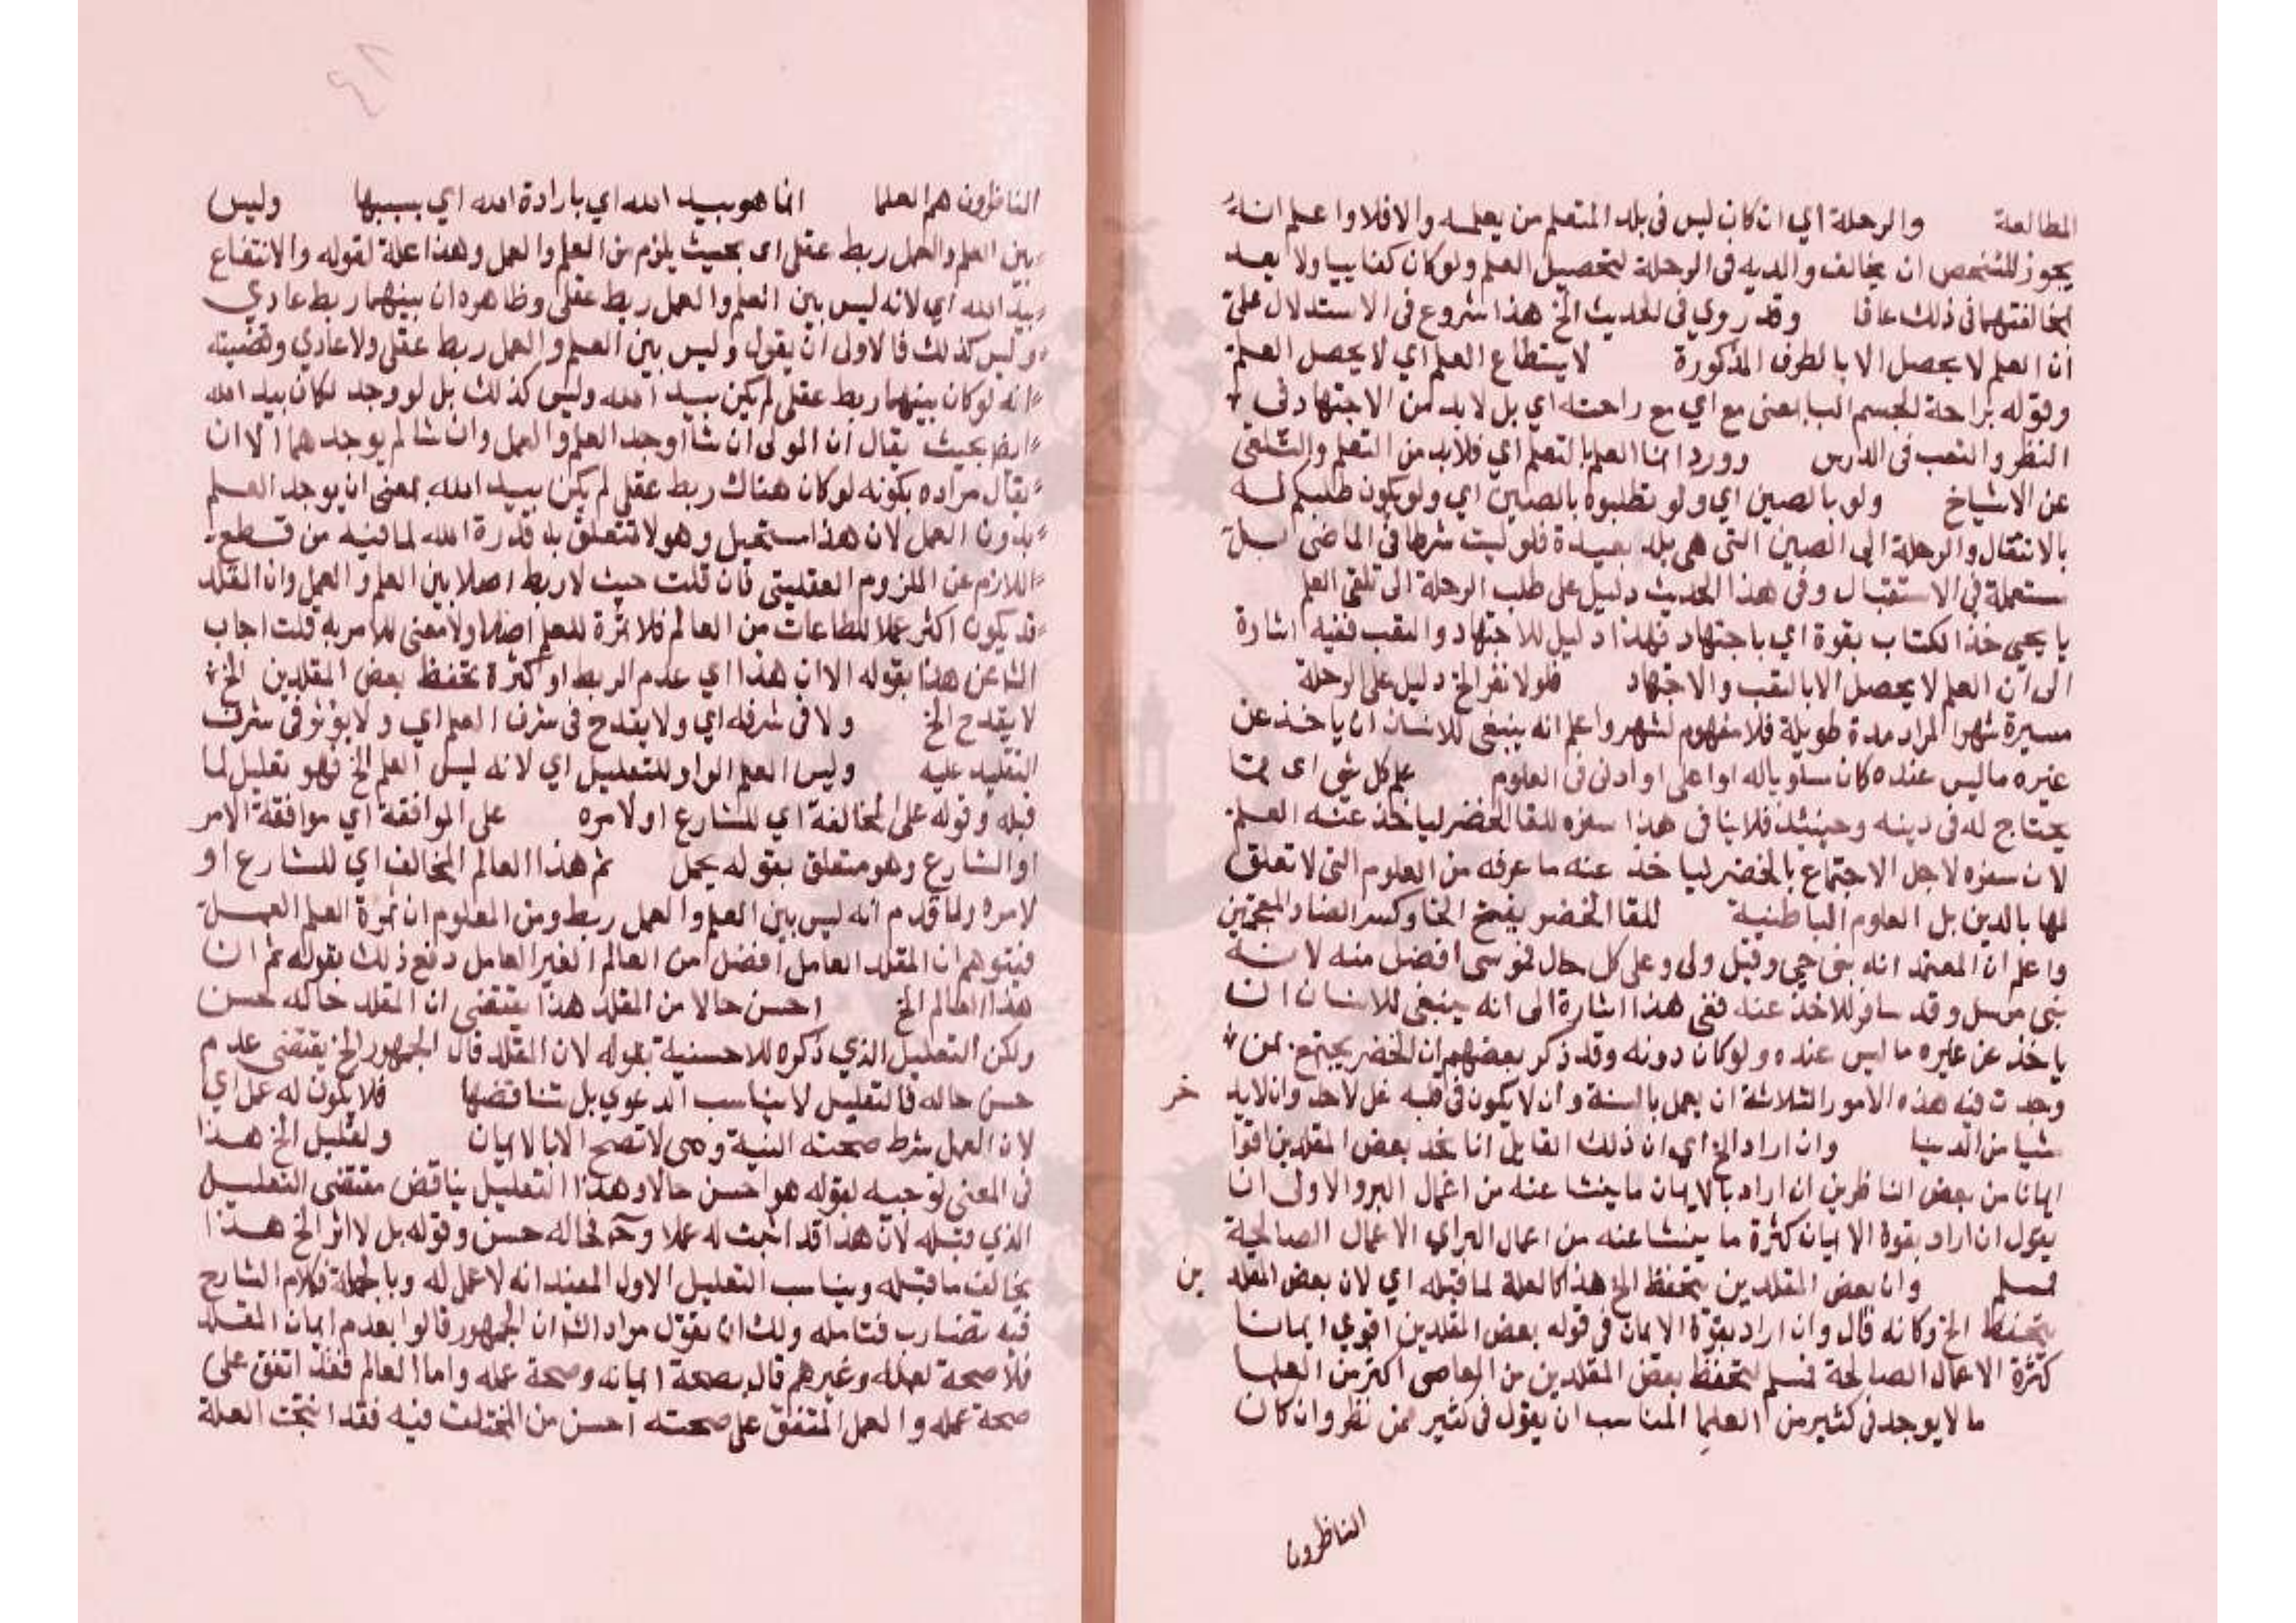 المطالعة والرحلة اي ان كان ليس في بلد المتعلم من يعلمه والا فلا واعلم انه
يجوز للشخص ان يخالف والديه في الرحلة لتحصيل العلم ولو كان كفاييا ولا يعد
بمخالفتهما في ذلك عاقا وقد روي في الحديث الخ هذا شروع في الاستدلال على
ان العلم لا يحصل الا بالطرق المذكورة لا يستطاع العلم اي لا يحصل العلم
وقوله براحة الجسم البا بمعني مع اي مع راحته اي بل لا بد من الاجتهاد في
النظر والتعب في الدارس وورد انما العلم بالتعلم اي فلا بد من التعلم والتلقي
عن الاشياخ ولو بالصين اي ولو تطلبوه بالصين اي ولو يكون طلبكم له
بالانتقال والرحلة الى الصين التي هي بلد بعيدة فلو ليست شرطا في الماضي بل
مستعملة في الاستقبال وفي هذا الحديث دليل على طلب الرحلة الى تلقي العلم
يا يحيى خذ الكتاب بقوة اي باجتهاد فهذا دليل للاجتهاد والتعب ففيه اشارة
الى ان العلم لا يحصل الا بالتعب والاجتهاد فلولا نفر الخ دليل على الرحلة
مسيرة شهر المراد مدة طويلة فلا مفهوم لشهر واعلم انه ينبغي للانسان ان ياخذ عن
غيره ما ليس عنده كان مساويا له او اعلى او ادنى في العلوم علم كل شي اى مما
يحتاج له في دينه وحينئذ فلا ينافي هذا سفره للقا الخضر لياخذ عنه العلم
لان سفره لاجل الاجتماع بالخضر لياخذ عنه ما عرفه من العلوم التي لا تعلق
لها بالدين بل العلوم الباطنية للقا الخضر بفتح الخا وكسر الضاد المعجمتين
واعلم ان المعتمد انه نبي حي وقيل ولي وعلى كل حال فموسى افضل منه لانه
نبي مرسل وقد سافر للاخذ عنه ففي هذا اشارة الى انه ينبغي للانسان ان
ياخذ عن غيره ما ليس عنده ولو كان دونه وقد ذكر بعضهم ان الخضر يجتمع بمن
وجدت فيه هذه الامور الثلاثة ان يعمل بالسنة وان لا يكون في قلبه غل لاحد وان لا يدخر
شيا من الدنيا وان اراد الخ اي ان ذلك القايل انا نجد بعض المقلدين اقوا
ايمانا من بعض الناظرين ان اراد بالايمان ما ينشا عنه من اعمال البر والاولى ان
يقول ان اراد بقوة الايمان كثرة ما ينشا عنه من اعمال البر اي الاعمال الصالحة
فمسلم وان بعض المقلدين يتحفظ الخ هذا كالعلة لما قبله اي لان بعض المقلدين
يتحفظ الخ وكانه قال وان اراد بقوة الايمان في قوله بعض المقلدين اقوي ايمانا
كثرة الاعمال الصالحة فمسلم لتحفظ بعض المقلدين من المعاصي اكثر من العلما
ما لا يوجد في كثير من العلما المناسب ان يقول في كثير ممن نظر وان كان
الناظرون
الناظرون هم العلما انما هو بيد الله اي بارادة الله اي بسببها وليس
بين العلم والعمل ربط عقلي اى بحيث يلزم من العلم والعمل وهذا علة لقوله والانتفاع
بيد الله اي لانه ليس بين العلم والعمل ربط عقلي وظاهره ان بينهما ربط عادي
وليس كذلك فالاولى ان يقول وليس بين العلم والعمل ربط عقلي ولا عادي وقضيته
انه لو كان بينهما ربط عقلي لم يكن بيد الله وليس كذلك بل لو وجد لكان بيد الله
ايضا بحيث يقال ان المولى ان شا اوجد العلم والعمل وان شا لم يوجدهما الا ان
يقال مراده بكونه لو كان هناك ربط عقلي لم يكن بيد الله بمعنى ان يوجد العلم
بدون العمل لان هذا مستحيل وهو لا تتعلق به قدرة الله لما فيه من قطع
اللازم عن الملزوم العقليين فان قلت حيث لا ربط اصلا بين العلم والعمل وان المقلد
قد يكون اكثر عملا للطاعات من العالم فلا ثمرة للعلم اصلا ولا معنى للامر به قلت اجاب
الشا عن هذا بقوله الا ان هذا اي عدم الربط او كثرة تحفظ بعض المقلدين الخ
لا يقدح الخ ولا في شرفه اي ولا يقدح في شرف العلم اي ولا يؤثر في شرف
التقليد عليه وليس العلم الواو للتعليل اي لانه ليس العلم الخ فهو تعليل لما
قبله وقوله على المخالفة اي للشارع او لامره على الموافقة اي موافقة الامر
او الشارع وهو متعلق بقوله يحمل ثم هذا العالم المخالف اي للشارع او
لامره ولما قدم انه ليس بين العلم والعمل ربط ومن المعلوم ان ثمرة العلم العمل
فيتوهم ان المقلد العامل افضل من العالم الغير العامل دفع ذلك بقوله ثم ان
هذا العالم الخ احسن حالا من المقلد هذا يقتضي ان المقلد حاله حسن
ولكن التعليل الذي ذكره للاحسنية بقوله لان المقلد قال الجمهور الخ يقتضي عدم
حسن حاله فالتعليل لا يناسب الدعوي بل تناقضها فلا يكون له عمل اي
لان العمل شرط صحته النية وهي لا تصح الا بالايمان ولقليل الخ هذا
في المعنى توجيه لقوله هو احسن حالا وهذا التعليل يناقض مقتضى التعليل
الذي قبله لان هذا قد اثبت له عملا وح فحاله حسن وقوله بل لا اثر الخ هذا
يخالف ما قبله ويناسب التعليل الاول المفيد انه لا عمل له وبالجملة فكلام الشارح
فيه تضارب فتامله ولك ان تقول مراد الشا ان الجمهور قالوا بعدم ايمان المقلد
فلا صحة لعمله وغيرهم قال بصحة ايمانه وصحة عمله واما العالم فقد اتفق على
صحة عمله والعمل المتفق على صحته احسن من المختلف فيه فقد انتجت العلة